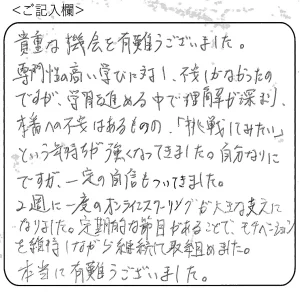 <ご記入欄>
貴重な機会を有難うございました。
専門性の高い学びに対し、不安しかなかったの
ですが、学習を進める中で理解が深まり、
本番への不安はあるものの、「挑戦してみたい」
という気持ちが強くなってきました。自分なりに
ですが、一定の自信もついてきました。
2週に一度のオンラインスクーリングが大きな支えに
なりました。定期的な節目があることで、モチベーション
を維持しながら継続して取り組めました。
本当に有難うございました。